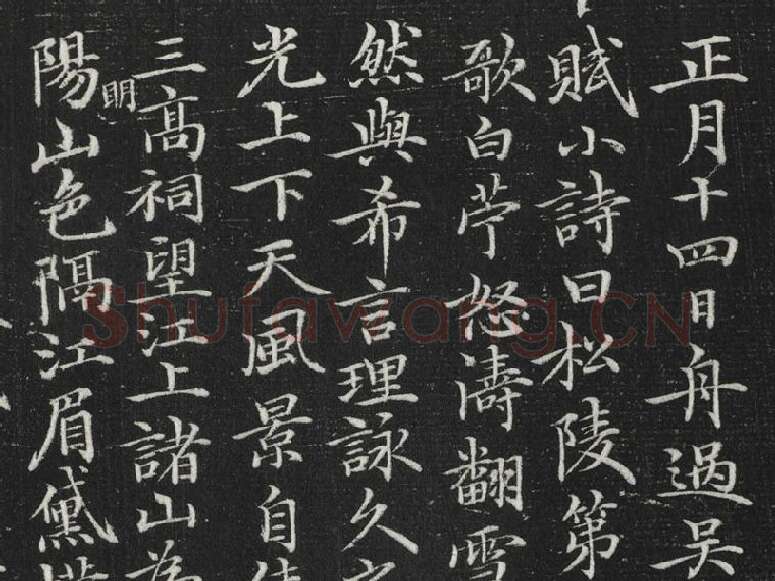 正月十四日舟過吳
賦小詩曰松陵第
歌白苧怒濤翻雪
然與希言理詠久
光上下天風景自
三高祠望江上諸山為
明
陽山色隔江眉黛
Shufawang.CN